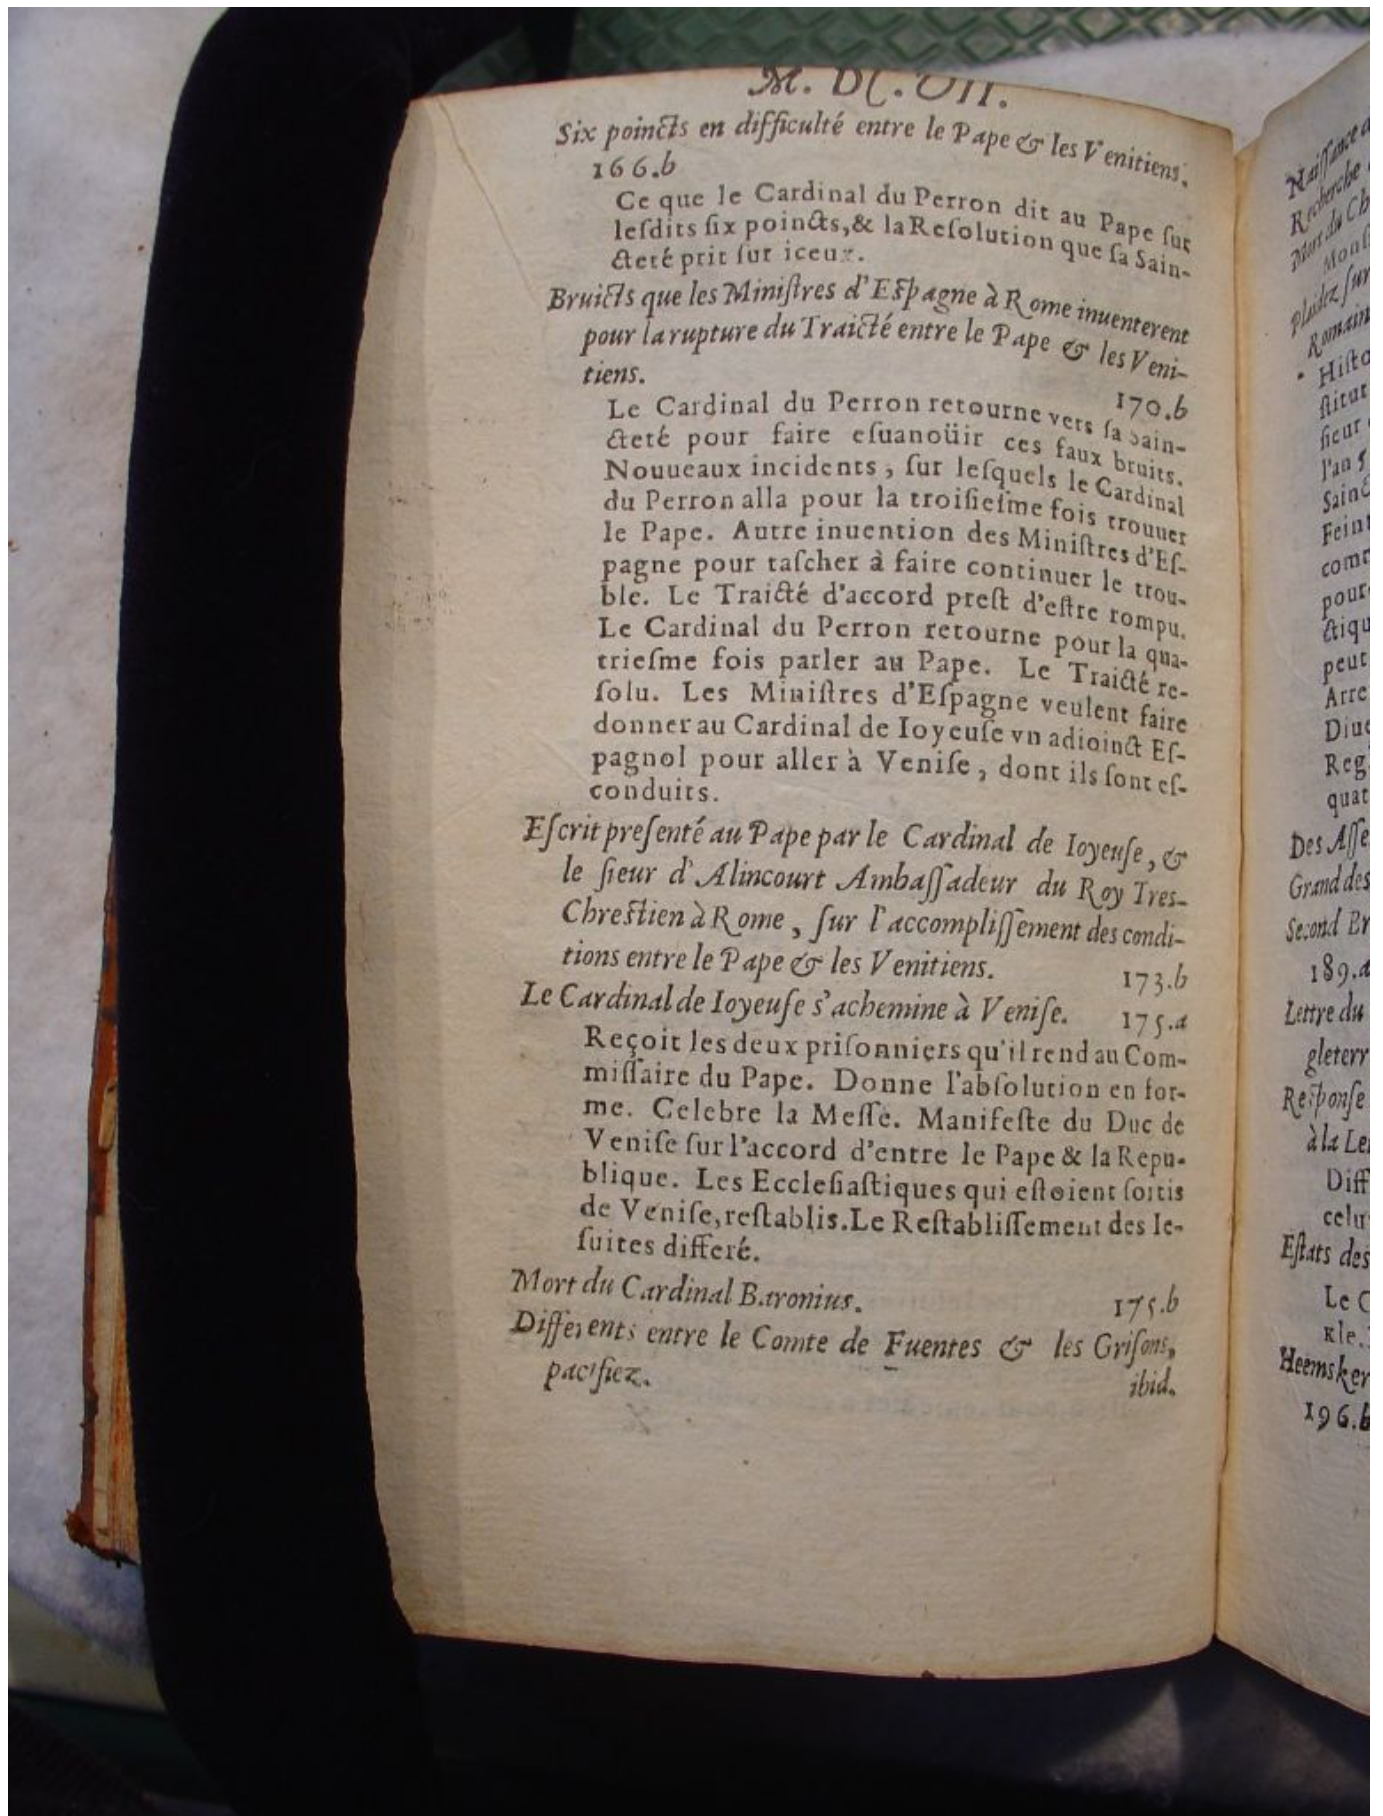 M. DC. VII.
Six poincts en difficulté entre le Pape & les Venitiens.
166.b
Ce que le Cardinal du Perron dit au Pape sur
lesdits six poincts, & la Resolution que sa Sain-
cteté prit sur iceux.
Bruicts que les Ministres d'Espagne à Rome inuenterent
pour la rupture du Traicté entre le Pape & les Veni-
tiens. 170.b
Le Cardinal du Perron retourne vers sa Sain-
cteté pour faire esuanoüir ces faux bruits.
Nouueaux incidents, sur lesquels le Cardinal
du Perron alla pour la troisiesme fois trouuer
le Pape. Autre inuention des Ministres d'Es-
pagne pour tascher à faire continuer le trou-
ble. Le Traicté d'accord prest d'estre rompu.
Le Cardinal du Perron retourne pour la qua-
triesme fois parler au Pape. Le Traicté re-
solu. Les Ministres d'Espagne veulent faire
donner au Cardinal de Ioyeuse vn adioinct Es-
pagnol pour aller à Venise, dont ils sont es-
conduits.
Escrit presenté au Pape par le Cardinal de Ioyeuse, &
le sieur d'Alincourt Ambassadeur du Roy Tres-
Chrestien à Rome, sur l'accomplissement des condi-
tions entre le Pape & les Venitiens. 173.b
Le Cardinal de Ioyeuse s'achemine à Venise. 175.a
Reçoit les deux prisonniers qu'il rend au Com-
missaire du Pape. Donne l'absolution en for-
me. Celebre la Messe. Manifeste du Duc de
Venise sur l'accord d'entre le Pape & la Repu-
blique. Les Ecclesiastiques qui estoient sortis
de Venise, restablis. Le Restablissement des Ie-
suites differé.
Mort du Cardinal Baronius. 175.b
Differents entre le Comte de Fuentes & les Grisons,
pacifiez. ibid.
Naissance
Recherche
Mort du Ch
Mons
Plaidez sur
Romain
Histo
stitut
sieur
l'an 5
Sainc
Feint
comt
pour
ctiqu
peut
Arre
Diue
Reg
quat
Des Asse
Grand des
Second Br
189.a
Lettre du
gleterr
Response
à la Let
Diff
celu
Estats des
Le C
kle.
Heemsker
196.b